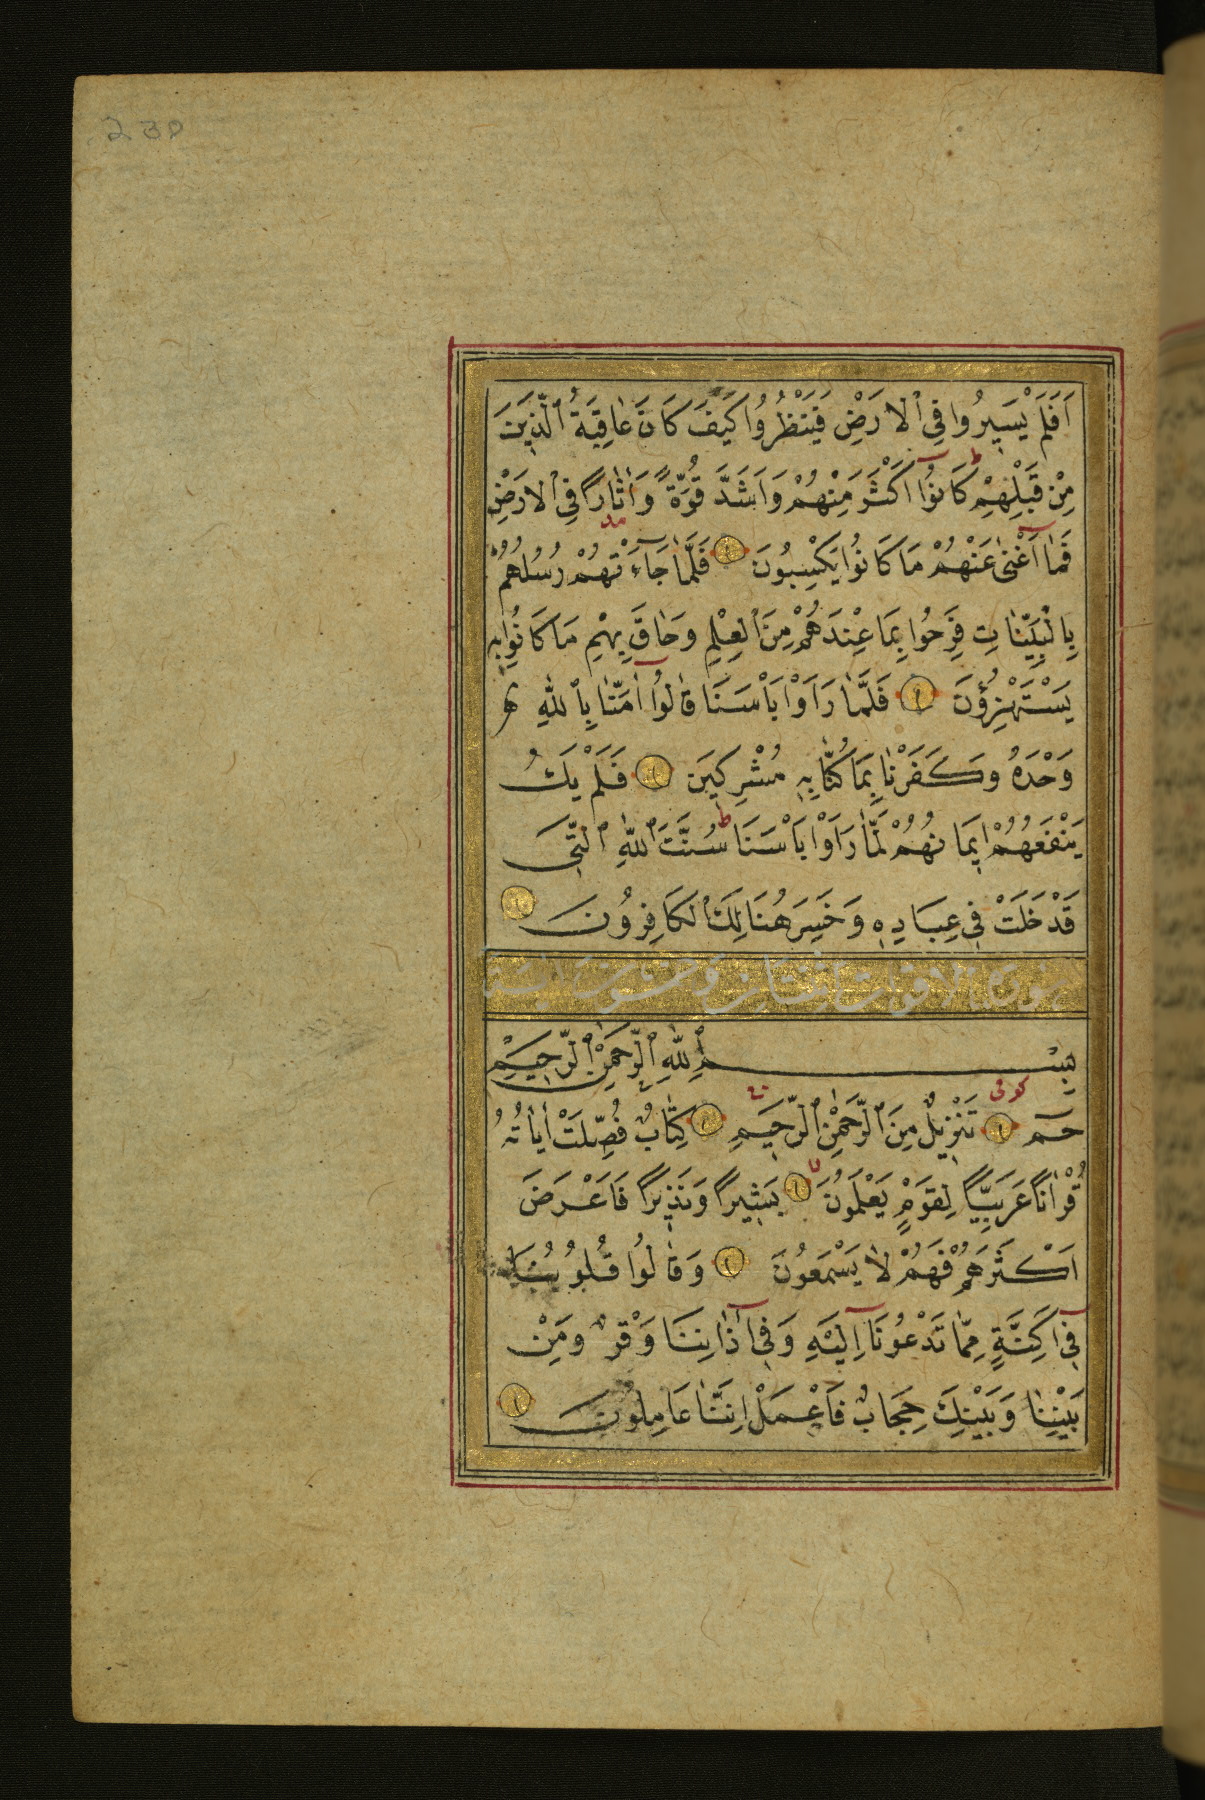 230
اَفَلَمْ يَسٖيرُوا فِي ٱلْاَرْضِ فَيَنْظُرُوا كَيْفَ كَانَ عٰاقِبَةُ ٱلَّذٖينَ
مِنْ قَبْلِهِمْ ط كَانُوٓا اَكْثَرَ مِنْهُمْ وَاَشَدَّ قُوَّةً وَاٰثٰارًا فِي ٱلْاَرْضِ
فَمٰٓا اَغْنٰى عَنْهُمْ مَا كَانُوا يَكْسِبُونَ فَلَمّٰا جَآءَتْهُمْ رُسُلُهُمْ
بِالْبَيِّنٰاتِ فَرِحُوا بِمَا عِنْدَهُمْ مِنَ ٱلْعِلْمِ وَحٰاقَ بِهِمْ مَا كَانُوا بِهٖ
يَسْتَهْزِؤُنَ فَلَمّٰا رَاَوْا بَاْسَنَا قٰالُوٓا اٰمَنّٰا بِٱللّٰهِ
وَحْدَهُ وَكَفَرْنٰا بِمَا كُنّٰا بِهٖ مُشْرِكٖينَ فَلَمْ يَكُ
يَنْفَعُهُمْ اٖيمَانُهُمْ لَمّٰا رَاَوْا بَاْسَنَا ط سُنَّتَ ٱللّٰهِ ٱلَّتٖى
قَدْ خَلَتْ فٖى عِبَادِهٖ وَخَسِرَ هُنَالِكَ ٱلْكَافِرُونَ
بِسْمِ ٱللّٰهِ ٱلرَّحْمٰنِ ٱلرَّحٖيمِ
كوفى
حٰمٓ تَنْزٖيلٌ مِنَ ٱلرَّحْمٰنِ ٱلرَّحٖيمِ كِتٰابٌ فُصِّلَتْ اٰيٰاتُهُ
قُرْاٰنًا عَرَبِيًّا لِقَوْمٍ يَعْلَمُونَ بَشٖيرًا وَنَذٖيرًا فَاَعْرَضَ
اَكْثَرُهُمْ فَهُمْ لٰا يَسْمَعُونَ وَقٰالُوا قُلُوبُنَا
فٖٓى اَكِنَّةٍ مِمّٰا تَدْعُونَآ اِلَيْهِ وَفٖٓى اٰذٰانِنَا وَقْرٌ وَمِنْ
بَيْنِنٰا وَبَيْنِكَ حِجَابٌ فَاعْمَلْ اِنَّنٰا عَامِلُونَ